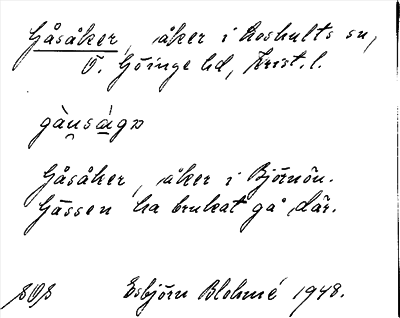 Gåsåker, åker i Loshults sn,
Ö. Göinge hd, Krist. l.
Gåsåker, åker i Björnön.
Gässen ha brukat gå där.
Esbjörn Blohmé 1948.